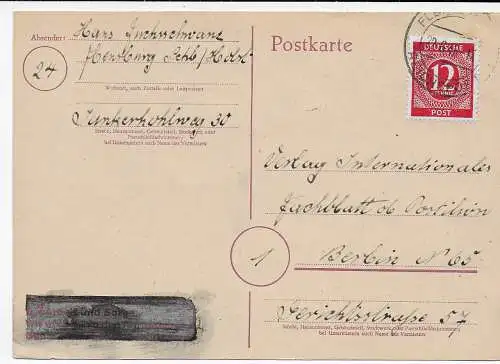 Absender: Hans Juchschwanz
24
Flensburg Schl/Holst
Wohnort, auch Zustell- oder Leitpostamt
Junkerhohlweg 30
Straße, Hausnummer, Gebäudeteil, Stockwerk oder
Postschließfachnummer;
bei Untermietern auch Name des Vermieters
Postkarte
DEUTSCHE
12
PFENNIG
POST
Verlag Internationales
Fachblatt d. Postilion
1
Berlin N 65
Gerichtsstraße 57
Straße, Hausnummer, Gebäudeteil, Stockwerk oder Postschließfachnummer;
bei Untermietern auch Name des Vermieters